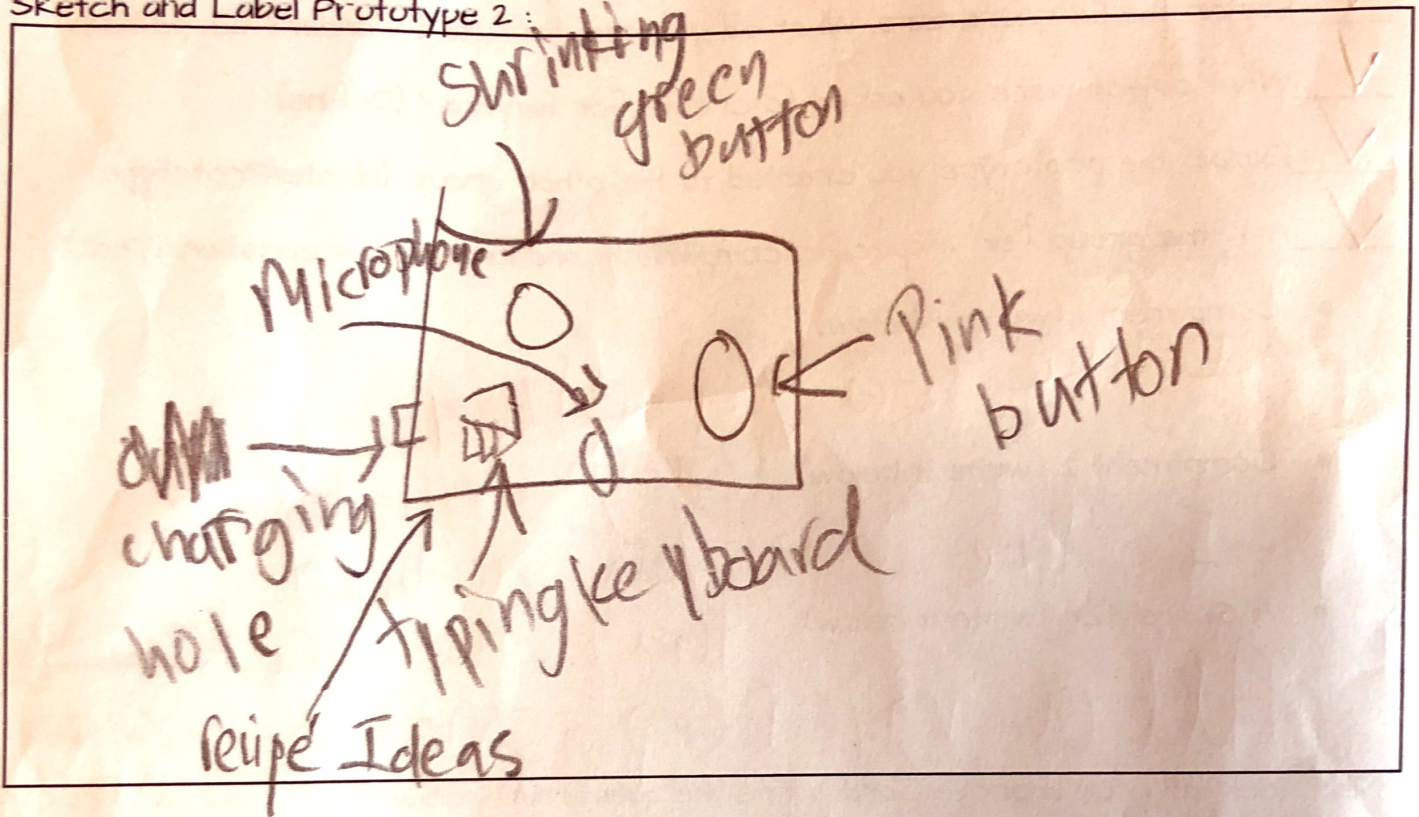 Sketch and Label Prototype 2 :
Shrinking
green
button
Microphone
Pink
button
charging
hole
typing keyboard
recipe Ideas